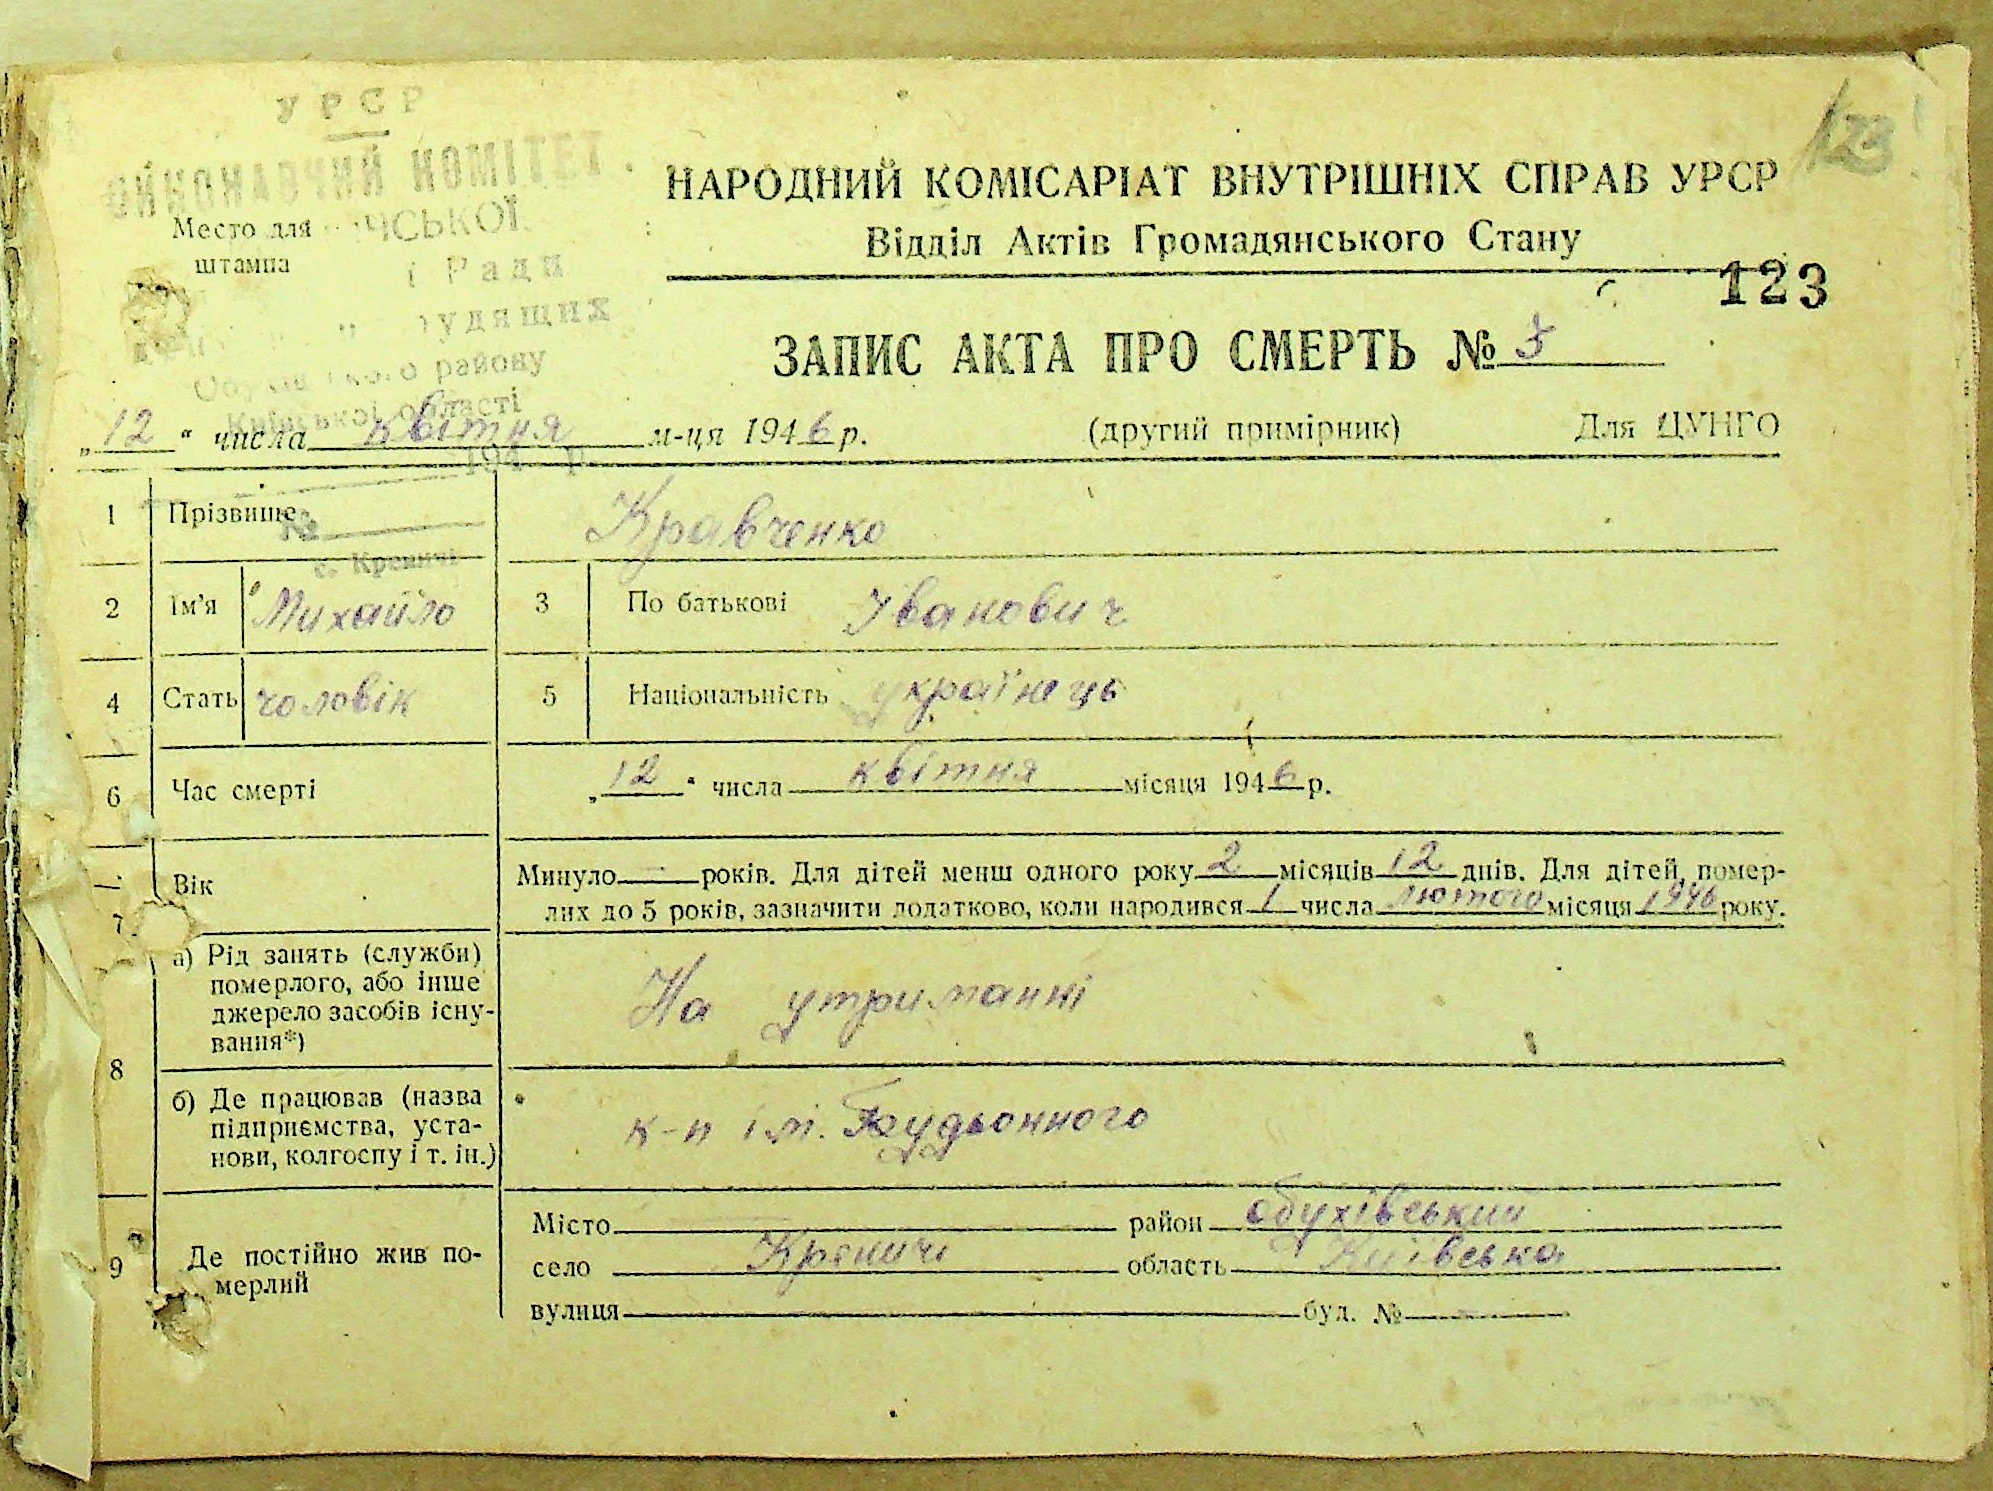 УРСР
123
ВИКОНАВЧИЙ КОМІТЕТ
НАРОДНИЙ КОМІСАРІАТ ВНУТРІШНІХ СПРАВ УРСР
Место для штампа
Відділ Актів Громадянського Стану
Ради
трудящих
123
ЗАПИС АКТА ПРО СМЕРТЬ №
району
Київської області
„12“ числа квітня м-ця 1946 р. (другий примірник) Для ЦУНГО
194 р.
1 Прізвище Кравченко
№
с. Креничі
2 Ім'я Михайло 3 По батькові Іванович
4 Стать чоловік 5 Національність українець
6 Час смерті „12“ числа квітня місяця 1946 р.
7 Вік Минуло — років. Для дітей менш одного року 2 місяців 12 днів. Для дітей, помер-
лих до 5 років, зазначити додатково, коли народився 1 числа лютого місяця 1946 року.
8 а) Рід занять (служби)
померлого, або інше
джерело засобів існу-
вання*)
На утриманні
б) Де працював (назва
підприємства, уста-
нови, колгоспу і т. ін.)
к-п ім. Будьонного
9 Де постійно жив по-
мерлий
Місто район обухівський
село Креничі область Київська
вулиця буд. №